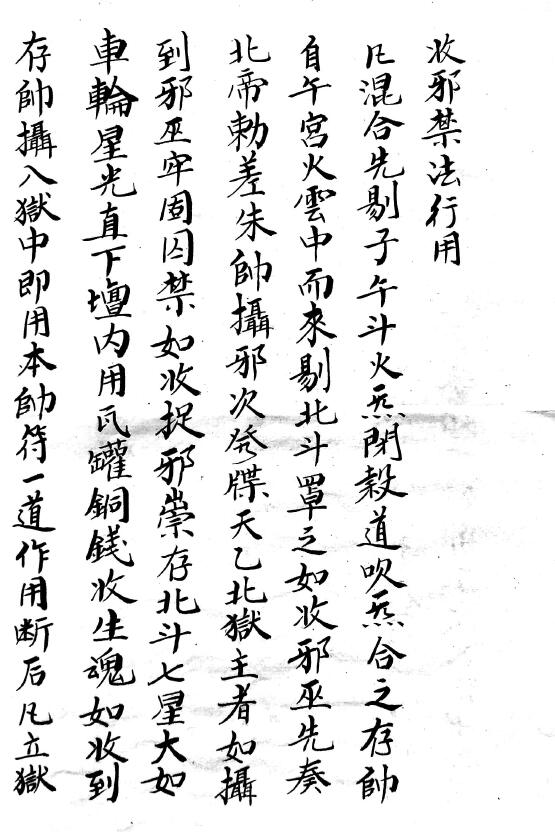 收邪禁法行用
凡混合先剔子午斗火炁閉穀道吹炁合之存帥
自午宮火雲中而來剔北斗罩之如收邪巫先奏
北帝勅差朱帥攝邪次發牒天乙北獄主者如攝
到邪巫牢固囚禁如收捉邪祟存北斗七星大如
車輪星光直下壇内用瓦罐銅錢收生魂如收到
存帥攝入獄中即用本帥符一道作用断后凡立獄